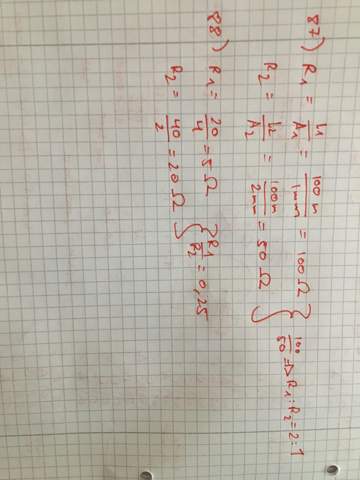 87) R1 = L1/A1 = 100m/1mm = 100 Ω
R2 = L2/A2 = 100m/2mm = 50 Ω } 100/50 => R1 : R2 = 2:1
88) R1 = 20/4 = 5 Ω
R2 = 40/2 = 20 Ω } R1/R2 = 0,25